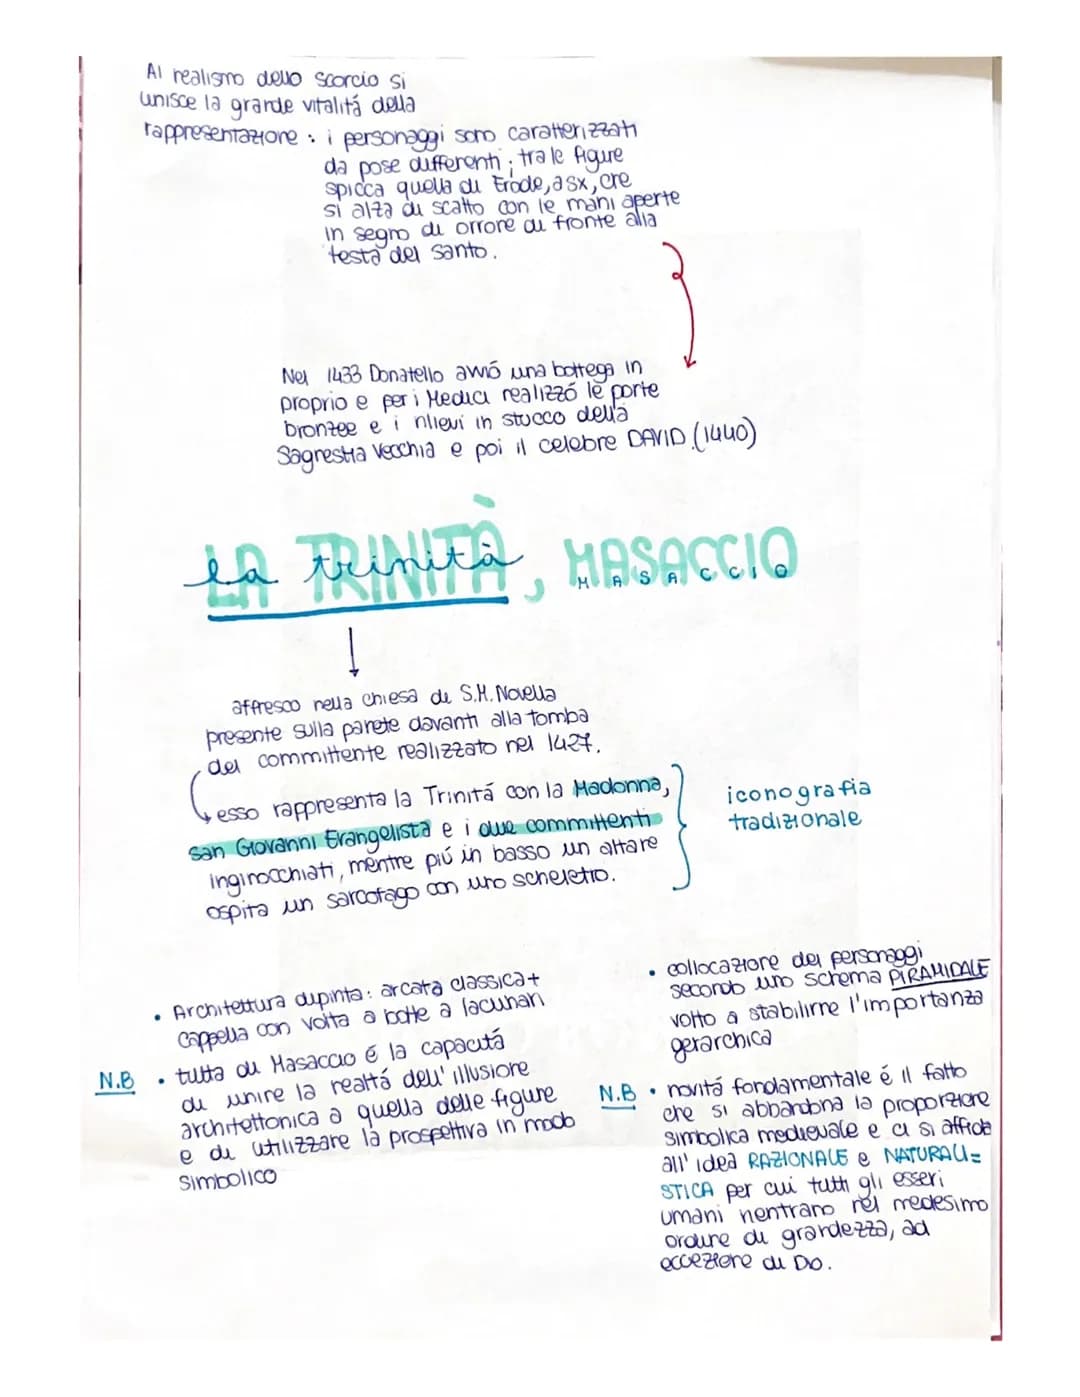 Al realismo dello scorcio si
unisce la grande vitalitá della
rappresentazione : i personaggi sono caratterizzati
da pose differenti ; tra le figure
spicca quella di Erode, a sx, che
si alza di scatto con le mani aperte
in segno di orrore di fronte alla
testa del santo.
Nel 1433 Donatello avvió una bottega in
proprio e per i Medici realizzó le porte
bronzee e i rilievi in stucco della
Sagrestia Vecchia e poi il celebre DAVID (1440)
LA TRINITÀ, MASACCIO
la trinità MASACCIO
affresco nella chiesa di S.M. Novella
presente sulla parete davanti alla tomba
del committente realizzato nel 1427.
esso rappresenta la Trinitá con la Madonna,
san Giovanni Evangelista e i due committenti
inginocchiati, mentre piú in basso un altare
ospita un sarcofago con uno scheletro.
iconografia
tradizionale
• Architettura dipinta : arcata classica +
cappella con volta a botte a lacunari
N.B • tutta di Masaccio é la capacitá
di unire la realtá dell' illusione
architettonica a quella delle figure
e di utilizzare la prospettiva in modo
simbolico
• collocazione dei personaggi
secondo uno schema PIRAMIDALE
volto a stabilirne l'importanza
gerarchica
N.B • novitá fondamentale é il fatto
che si abbandona la proporzione
simbolica medievale e ci si affida
all' idea RAZIONALE e NATURALI=
STICA per cui tutti gli esseri
umani rientrano nel medesimo
ordine di grandezza, ad
eccezione di Dio.